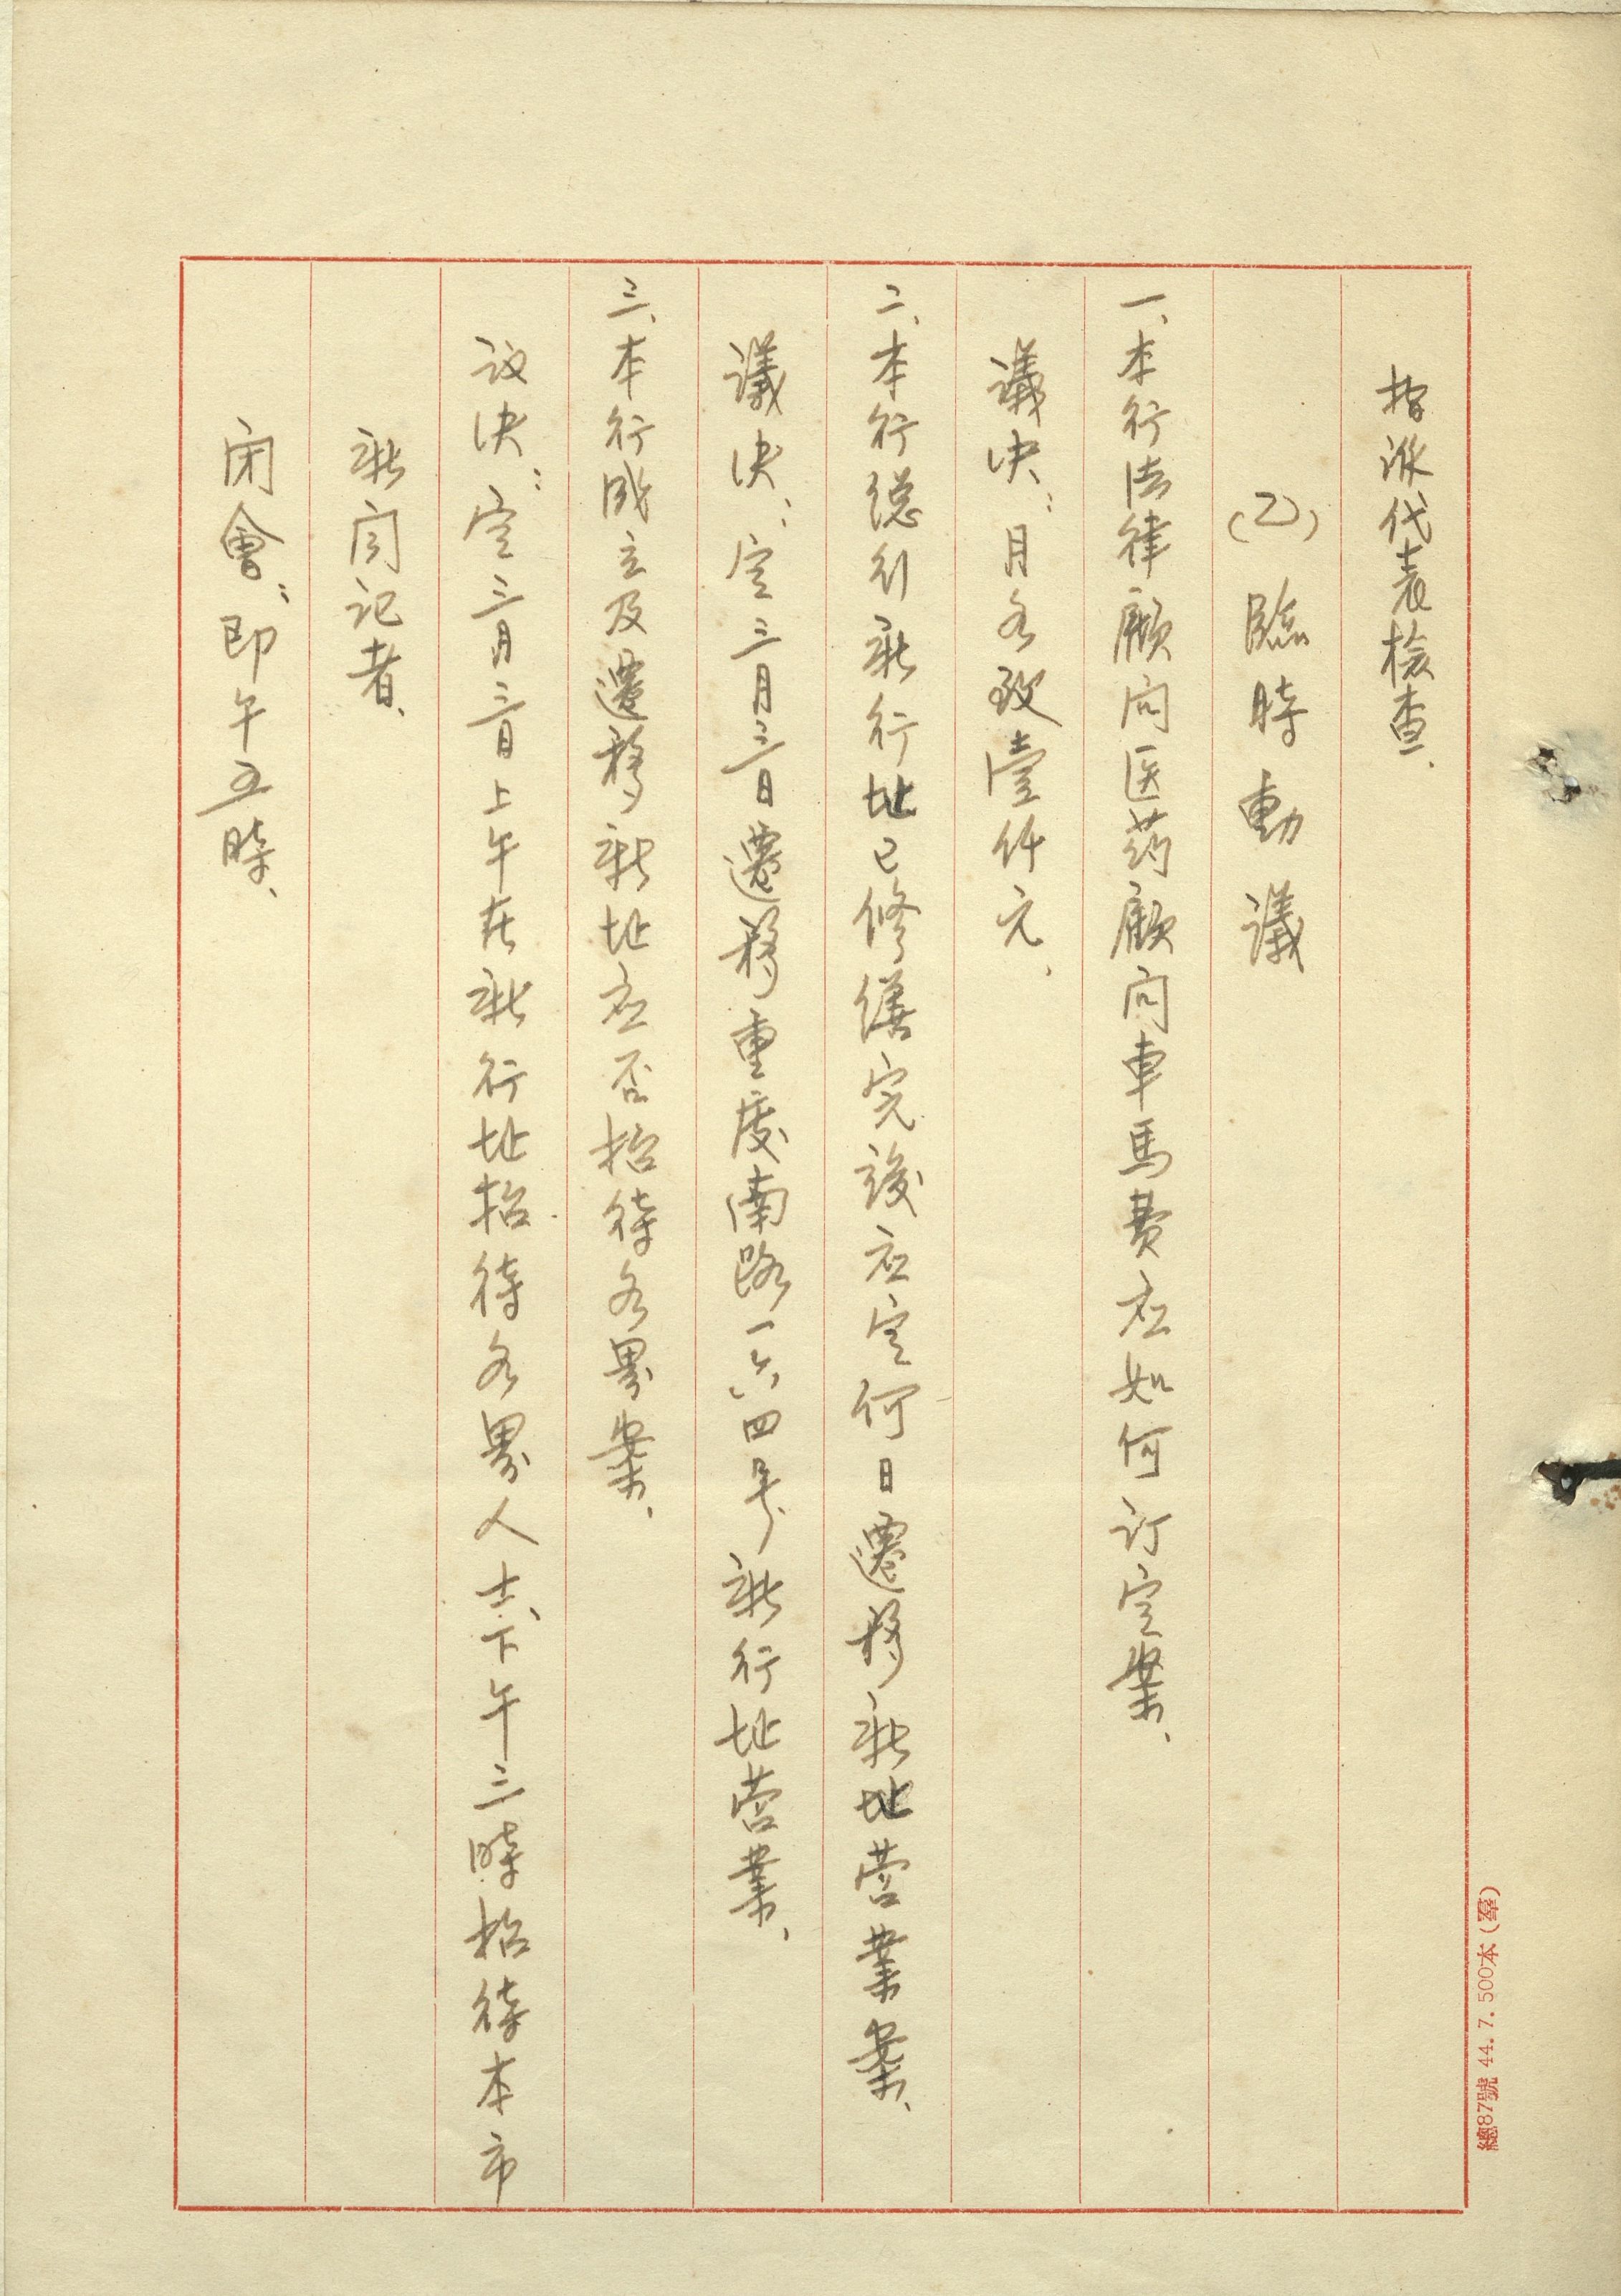 指派代表檢查、
(乙) 臨時動議
一、本行法律顧问医药顧问車馬費应如何订定案、
議决：月各致壹仟元、
二、本行總行新行址已修繕完竣应定何日遷移新址营業案、
議决：定三月三日遷移重慶南路一六四号新行址营業、
三、本行成立及遷移新址应否招待各界案、
议决：定三月三日上午在新行址招待各界人士、下午三時招待本市
新闻记者、
闭會：即午五時、
總87號 44. 7. 500本